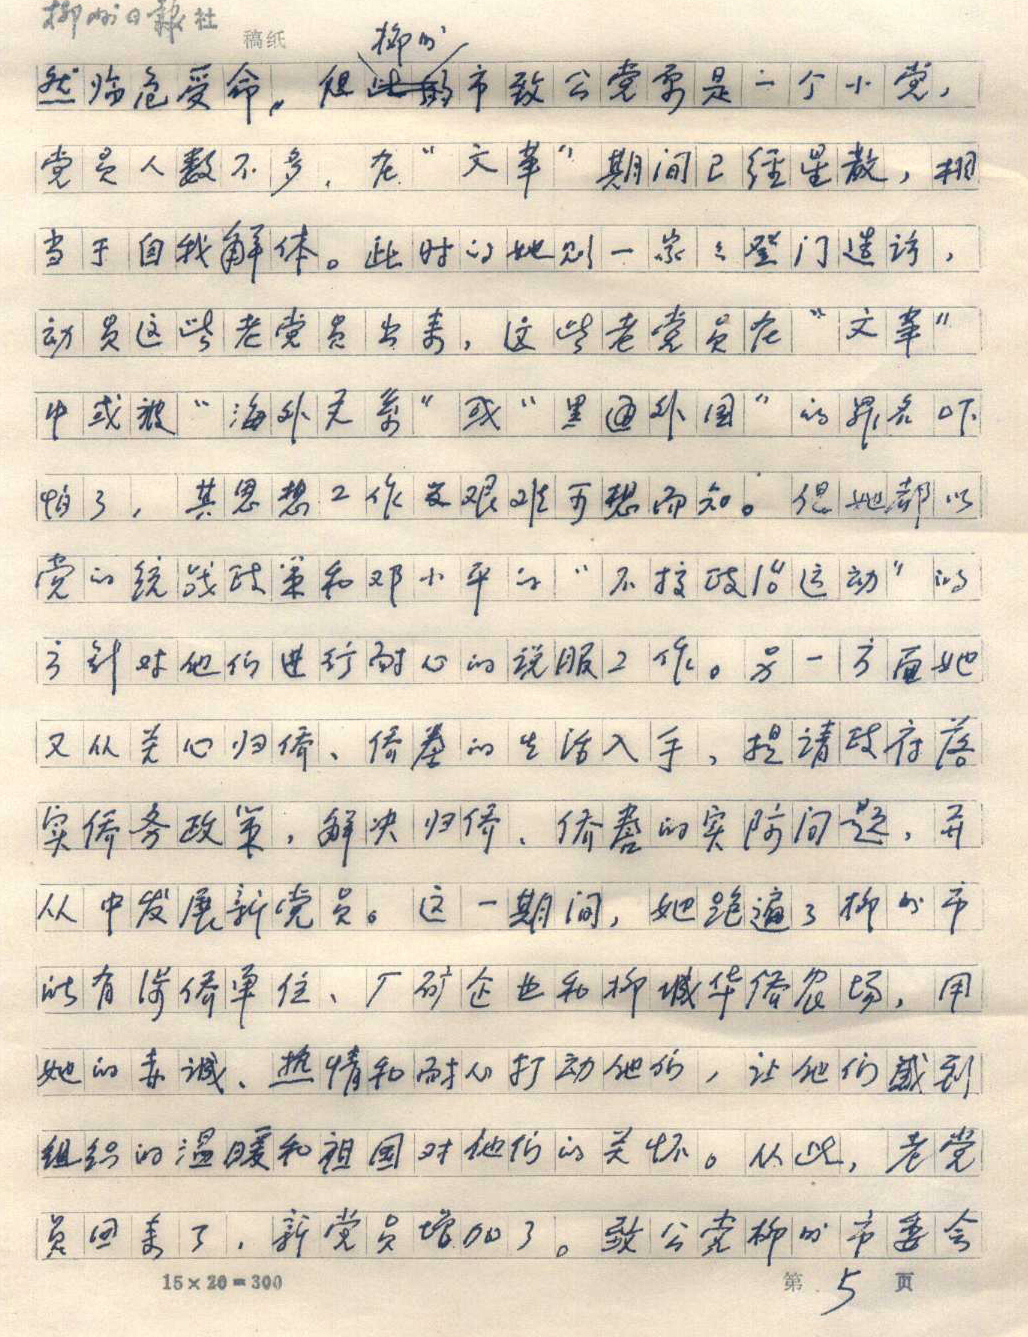 柳州日报社 稿纸
柳州
然临危受命。但此的市致公党原是一个小党,
党员人数不多,在“文革”期间已经星散,相
当于自我解体。此时的她则一家々登门造访,
动员这些老党员出来,这些老党员在“文革”
中或被“海外关系”或“里通外国”的罪名吓
怕了,其思想工作之艰难可想而知。但她都以
党的统战政策和邓小平的“不搞政治运动”的
方针对他们进行耐心的说服工作。另一方面她
又从关心归侨、侨眷的生活入手,提请政府落
实侨务政策,解决归侨、侨眷的实际问题,并
从中发展新党员。这一期间,她跑遍了柳州市
所有涉侨单位、厂矿企业和柳城华侨农场,用
她的赤诚、热情和耐心打动他们,让他们感到
组织的温暖和祖国对他们的关怀。从此,老党
员回来了,新党员增加了。致公党柳州市委会
15×20=300 第 5 页